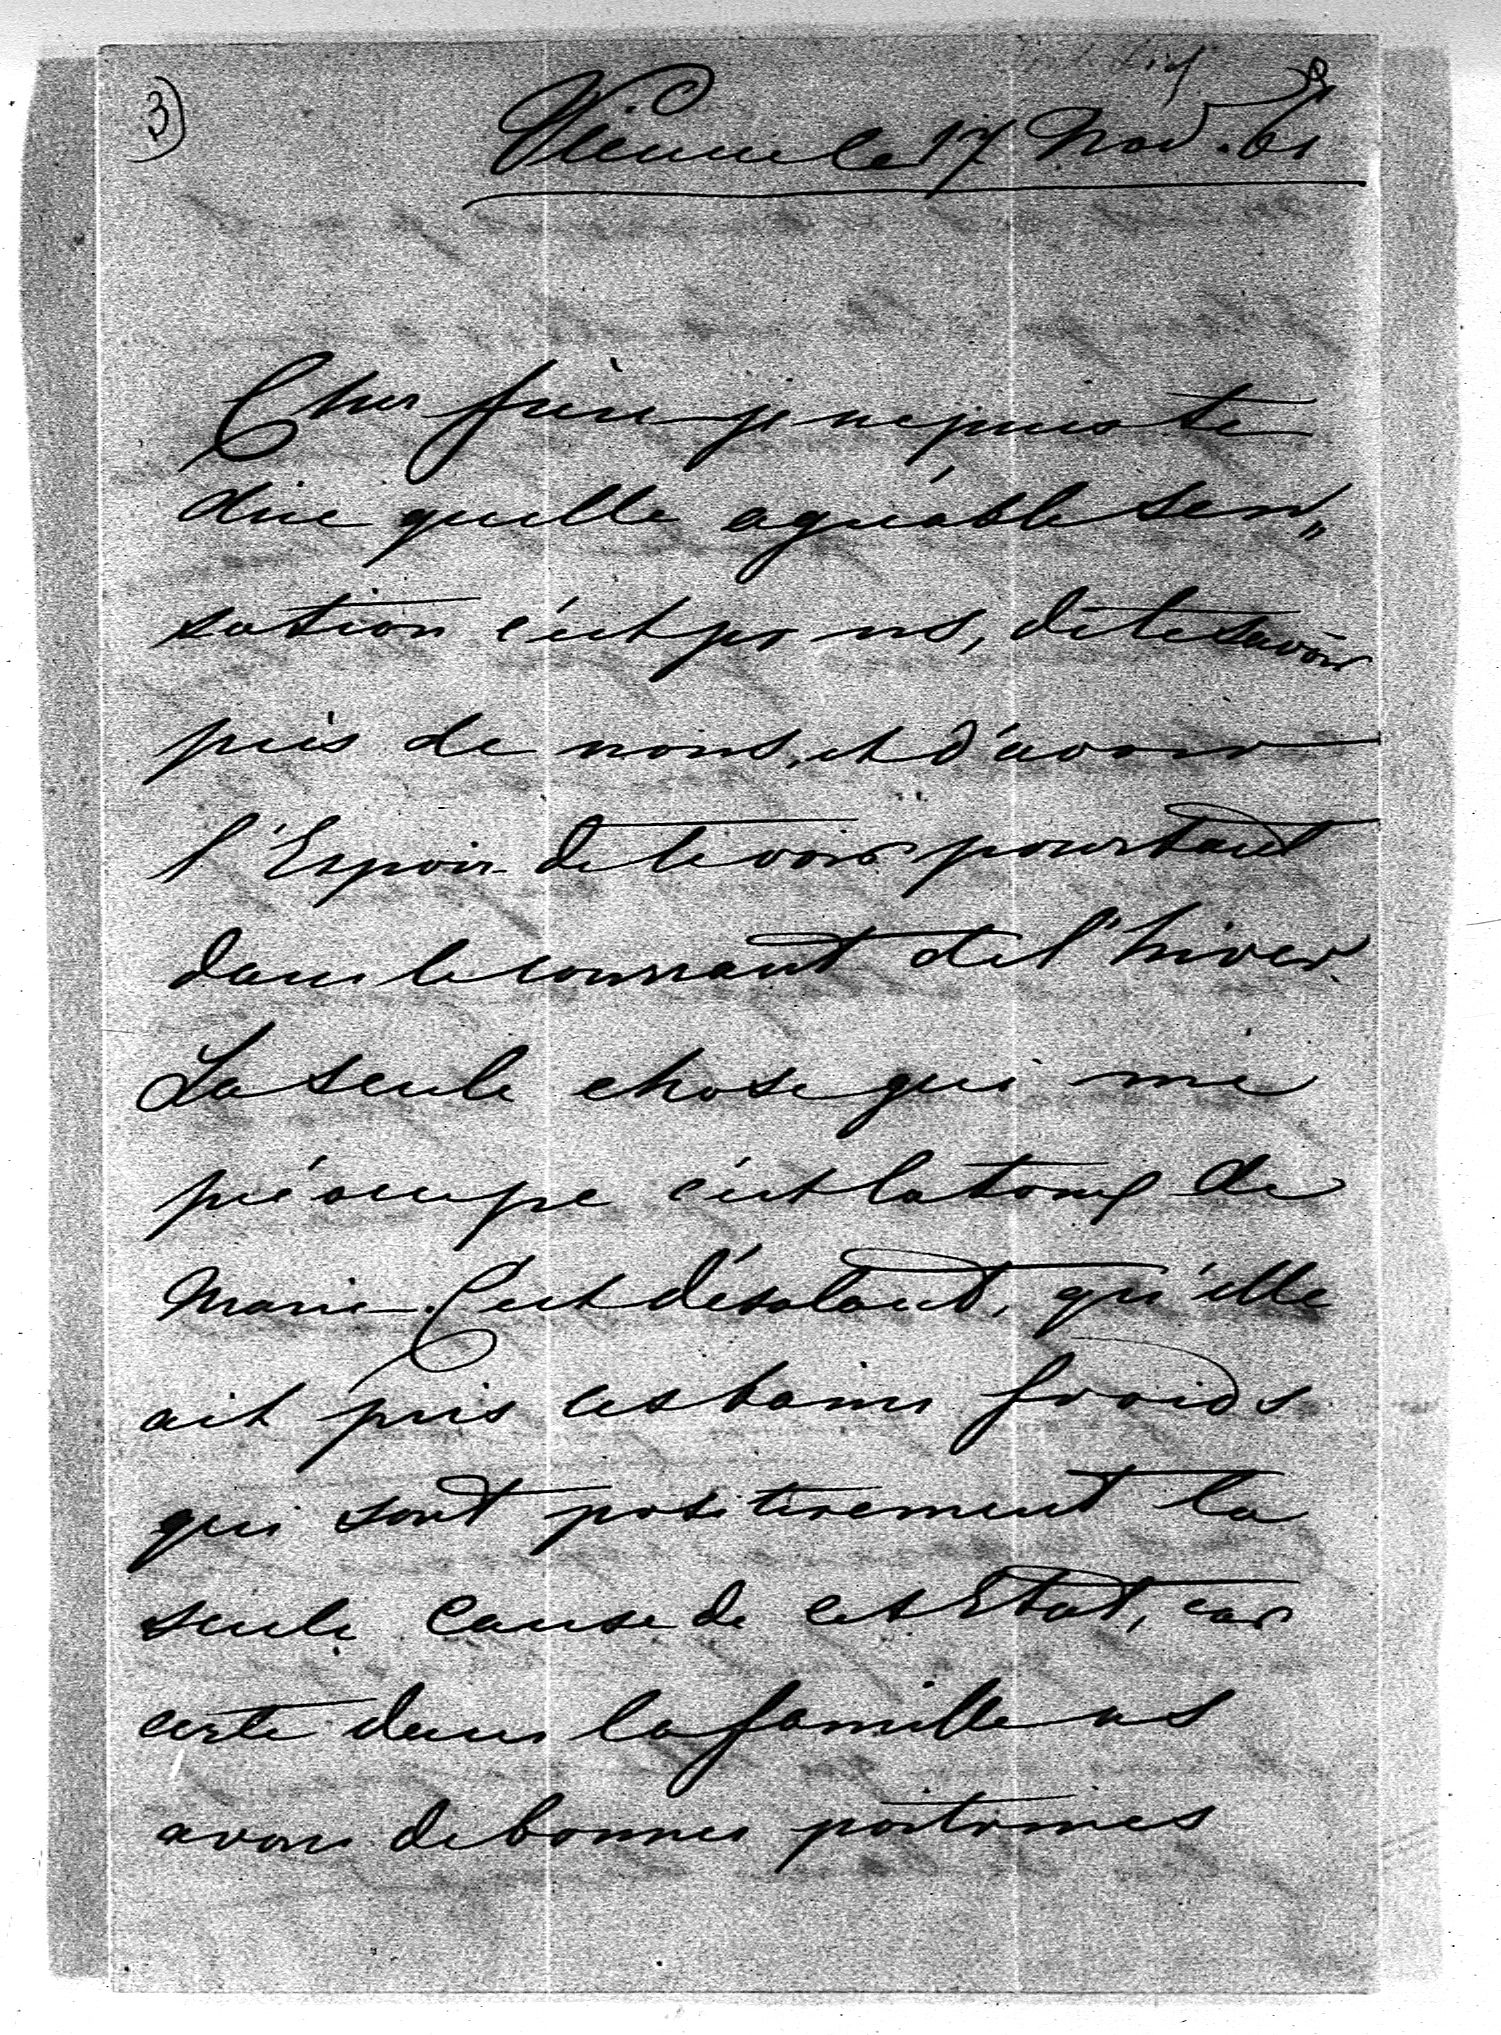 3)
Vienne le 17 Nov. 61
Cher frère je ne puis te
dire quelle agréable sen„
sation c'est pr ns, de te savoir
près de nous, et d'avoir
l'Espoir de te voir pourtant
dans le courrant de l'hiver.
La seule chose qui me
préoccupe c'est la toux de
Marie. C'est désolant, qu'elle
ait pris ces bains froids
qui sont positivement la
seule cause de cet Etat, car
certe dans la famille ns
avons de bonnes poitrines